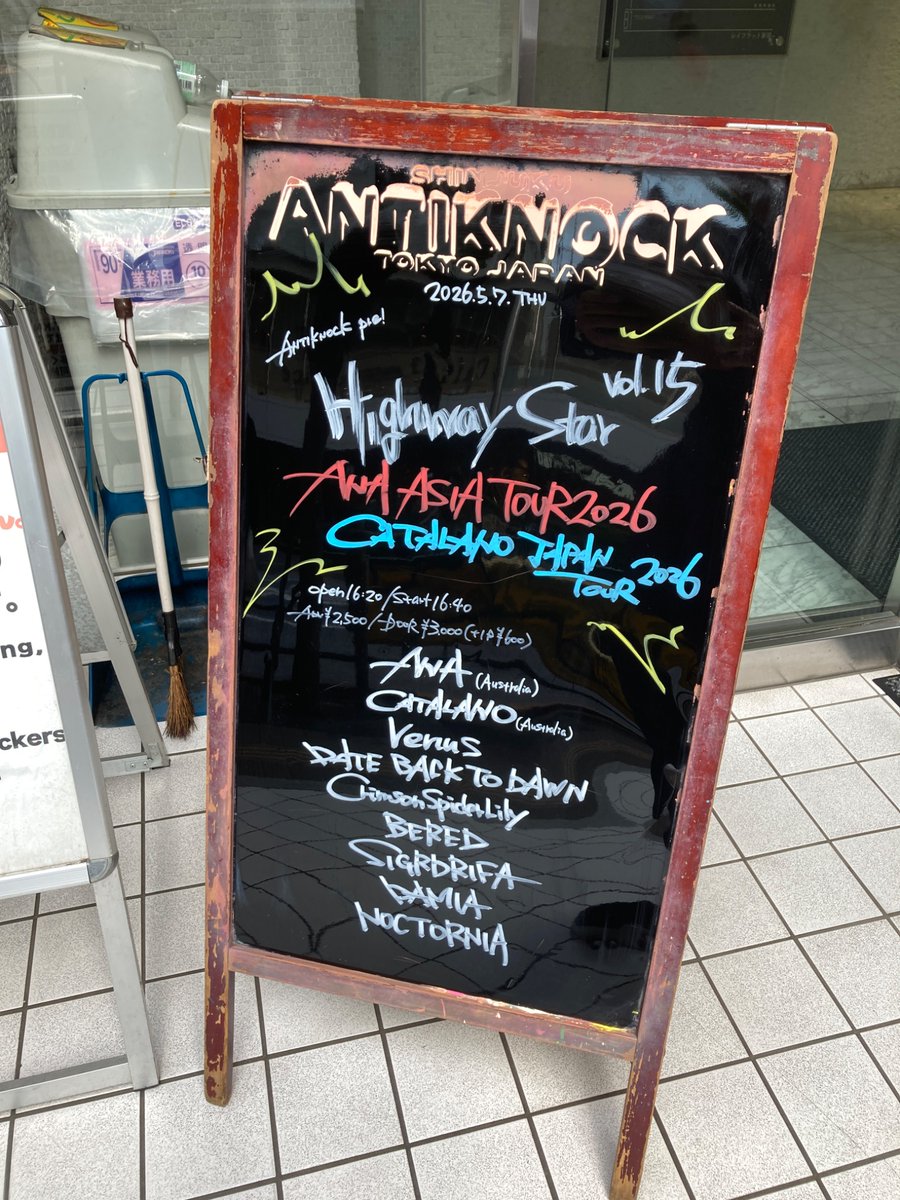 SHINJUKU
ANTIKNOCK
TOKYO JAPAN
2026.5.7.THU
ANTIKNOCK pre!
Highway Star vol.15
AWA ASIA TOUR 2026
CATALANO JAPAN TOUR 2026
open 16:20/Start 16:40
Adv ¥2,500/DOOR ¥3,000(+1D ¥600)
AWA (Australia)
CATALANO (Australia)
Venus
DATE BACK TO DAWN
CrimsonSpiderLily
BERED
SIGRDRIFA
DAMIA
NOCTORNIA
業務用
90
10
ng,
ckers